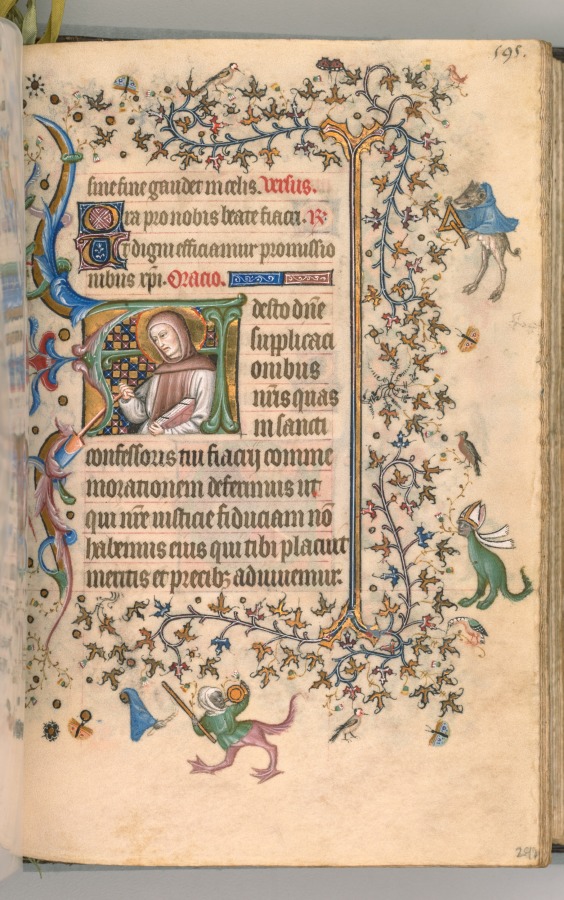 595.
sine fine gaudet in celis. Versus.
Ora pro nobis beate fiacri. R:
Ut digni efficiamur promissio
nibus xpi. Oracio.
Adesto dne
supplicaci
onibus
nris quas
in sancti
confessoris tui fiacrij comme
morationem deferimus ut
qui nre iusticie fiduciam nō
habemus eius qui tibi placuit
meritis et precibz adiuuemur.